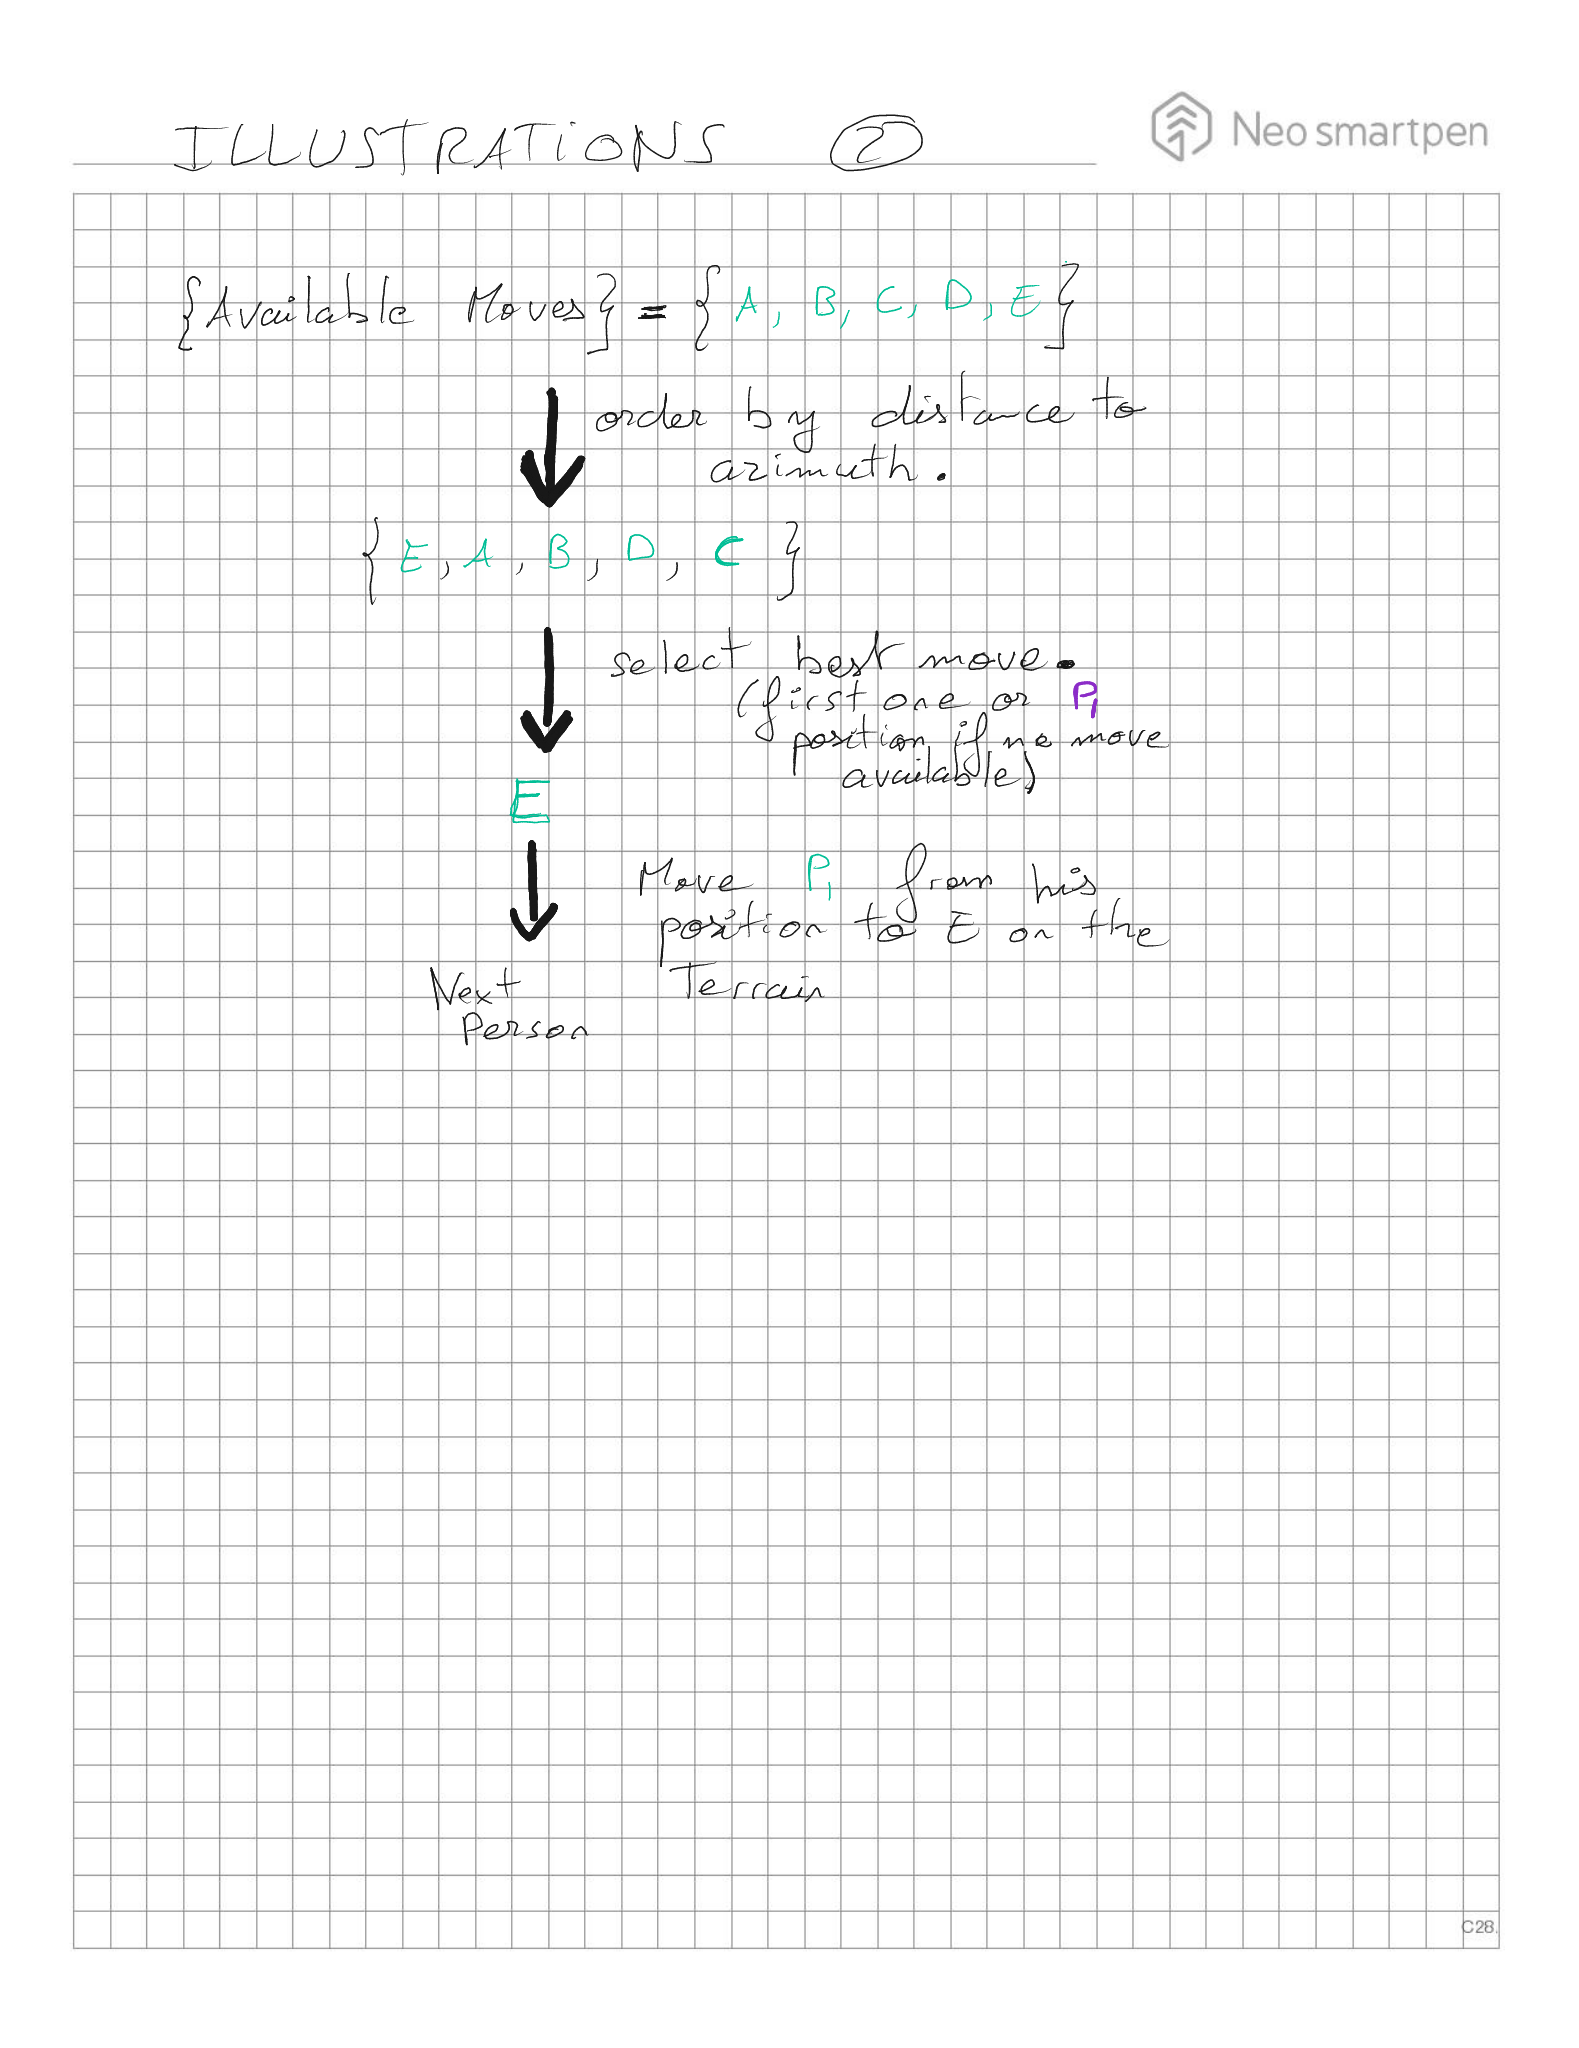 ILLUSTRATIONS ②
Neo smartpen
{Available Moves} = {A, B, C, D, E}
order by distance to
azimuth.
{E, A, B, D, C}
select best move.
(first one or P1
position if no move
available)
E
Move P1 from his
position to E on the
Terrain
Next
Person
C28.